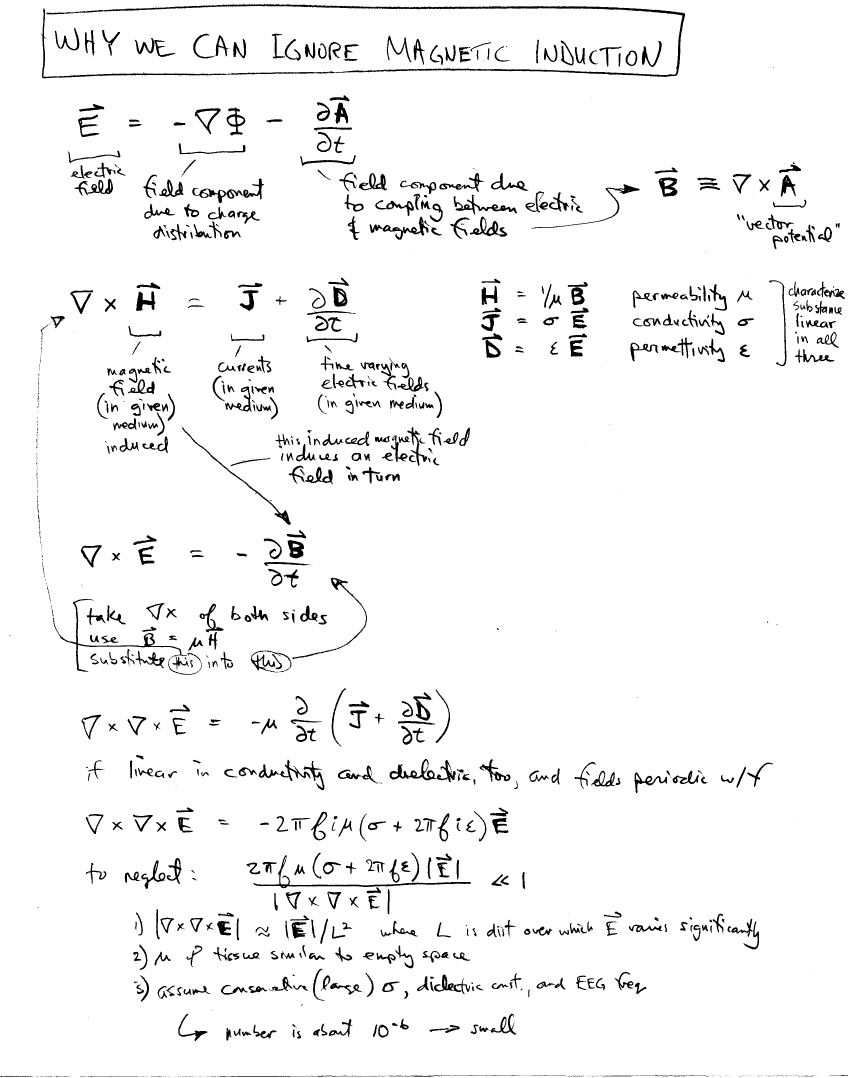 WHY WE CAN IGNORE MAGNETIC INDUCTION
E⃗ = - ∇Φ - ∂A⃗/∂t
electric field
field component due to charge distribution
field component due to coupling between electric & magnetic fields
B⃗ ≡ ∇ × A⃗
"vector potential"
∇ × H⃗ = J⃗ + ∂D⃗/∂t
magnetic field (in given medium) induced
currents (in given medium)
time varying electric fields (in given medium)
H⃗ = 1/μ B⃗ permeability μ
J⃗ = σ E⃗ conductivity σ
D⃗ = ε E⃗ permettivity ε
characterize substance linear in all three
this induced magnetic field induces an electric field in turn
∇ × E⃗ = - ∂B⃗/∂t
take ∇× of both sides
use B⃗ = μH⃗
substitute this into this
∇ × ∇ × E⃗ = -μ ∂/∂t (J⃗ + ∂D⃗/∂t)
if linear in conductivity and dielectric, too, and fields periodic w/f
∇ × ∇ × E⃗ = -2πfiμ(σ + 2πfiε)E⃗
to neglect: 2πfμ(σ + 2πfε)|E⃗| / |∇ × ∇ × E⃗| << 1
1) |∇×∇×E⃗| ≈ |E⃗|/L² where L is dist over which E⃗ varies significantly
2) μ of tissue similar to empty space
3) assume conservative (large) σ, dielectric const., and EEG freq
↳ number is about 10⁻⁶ → small